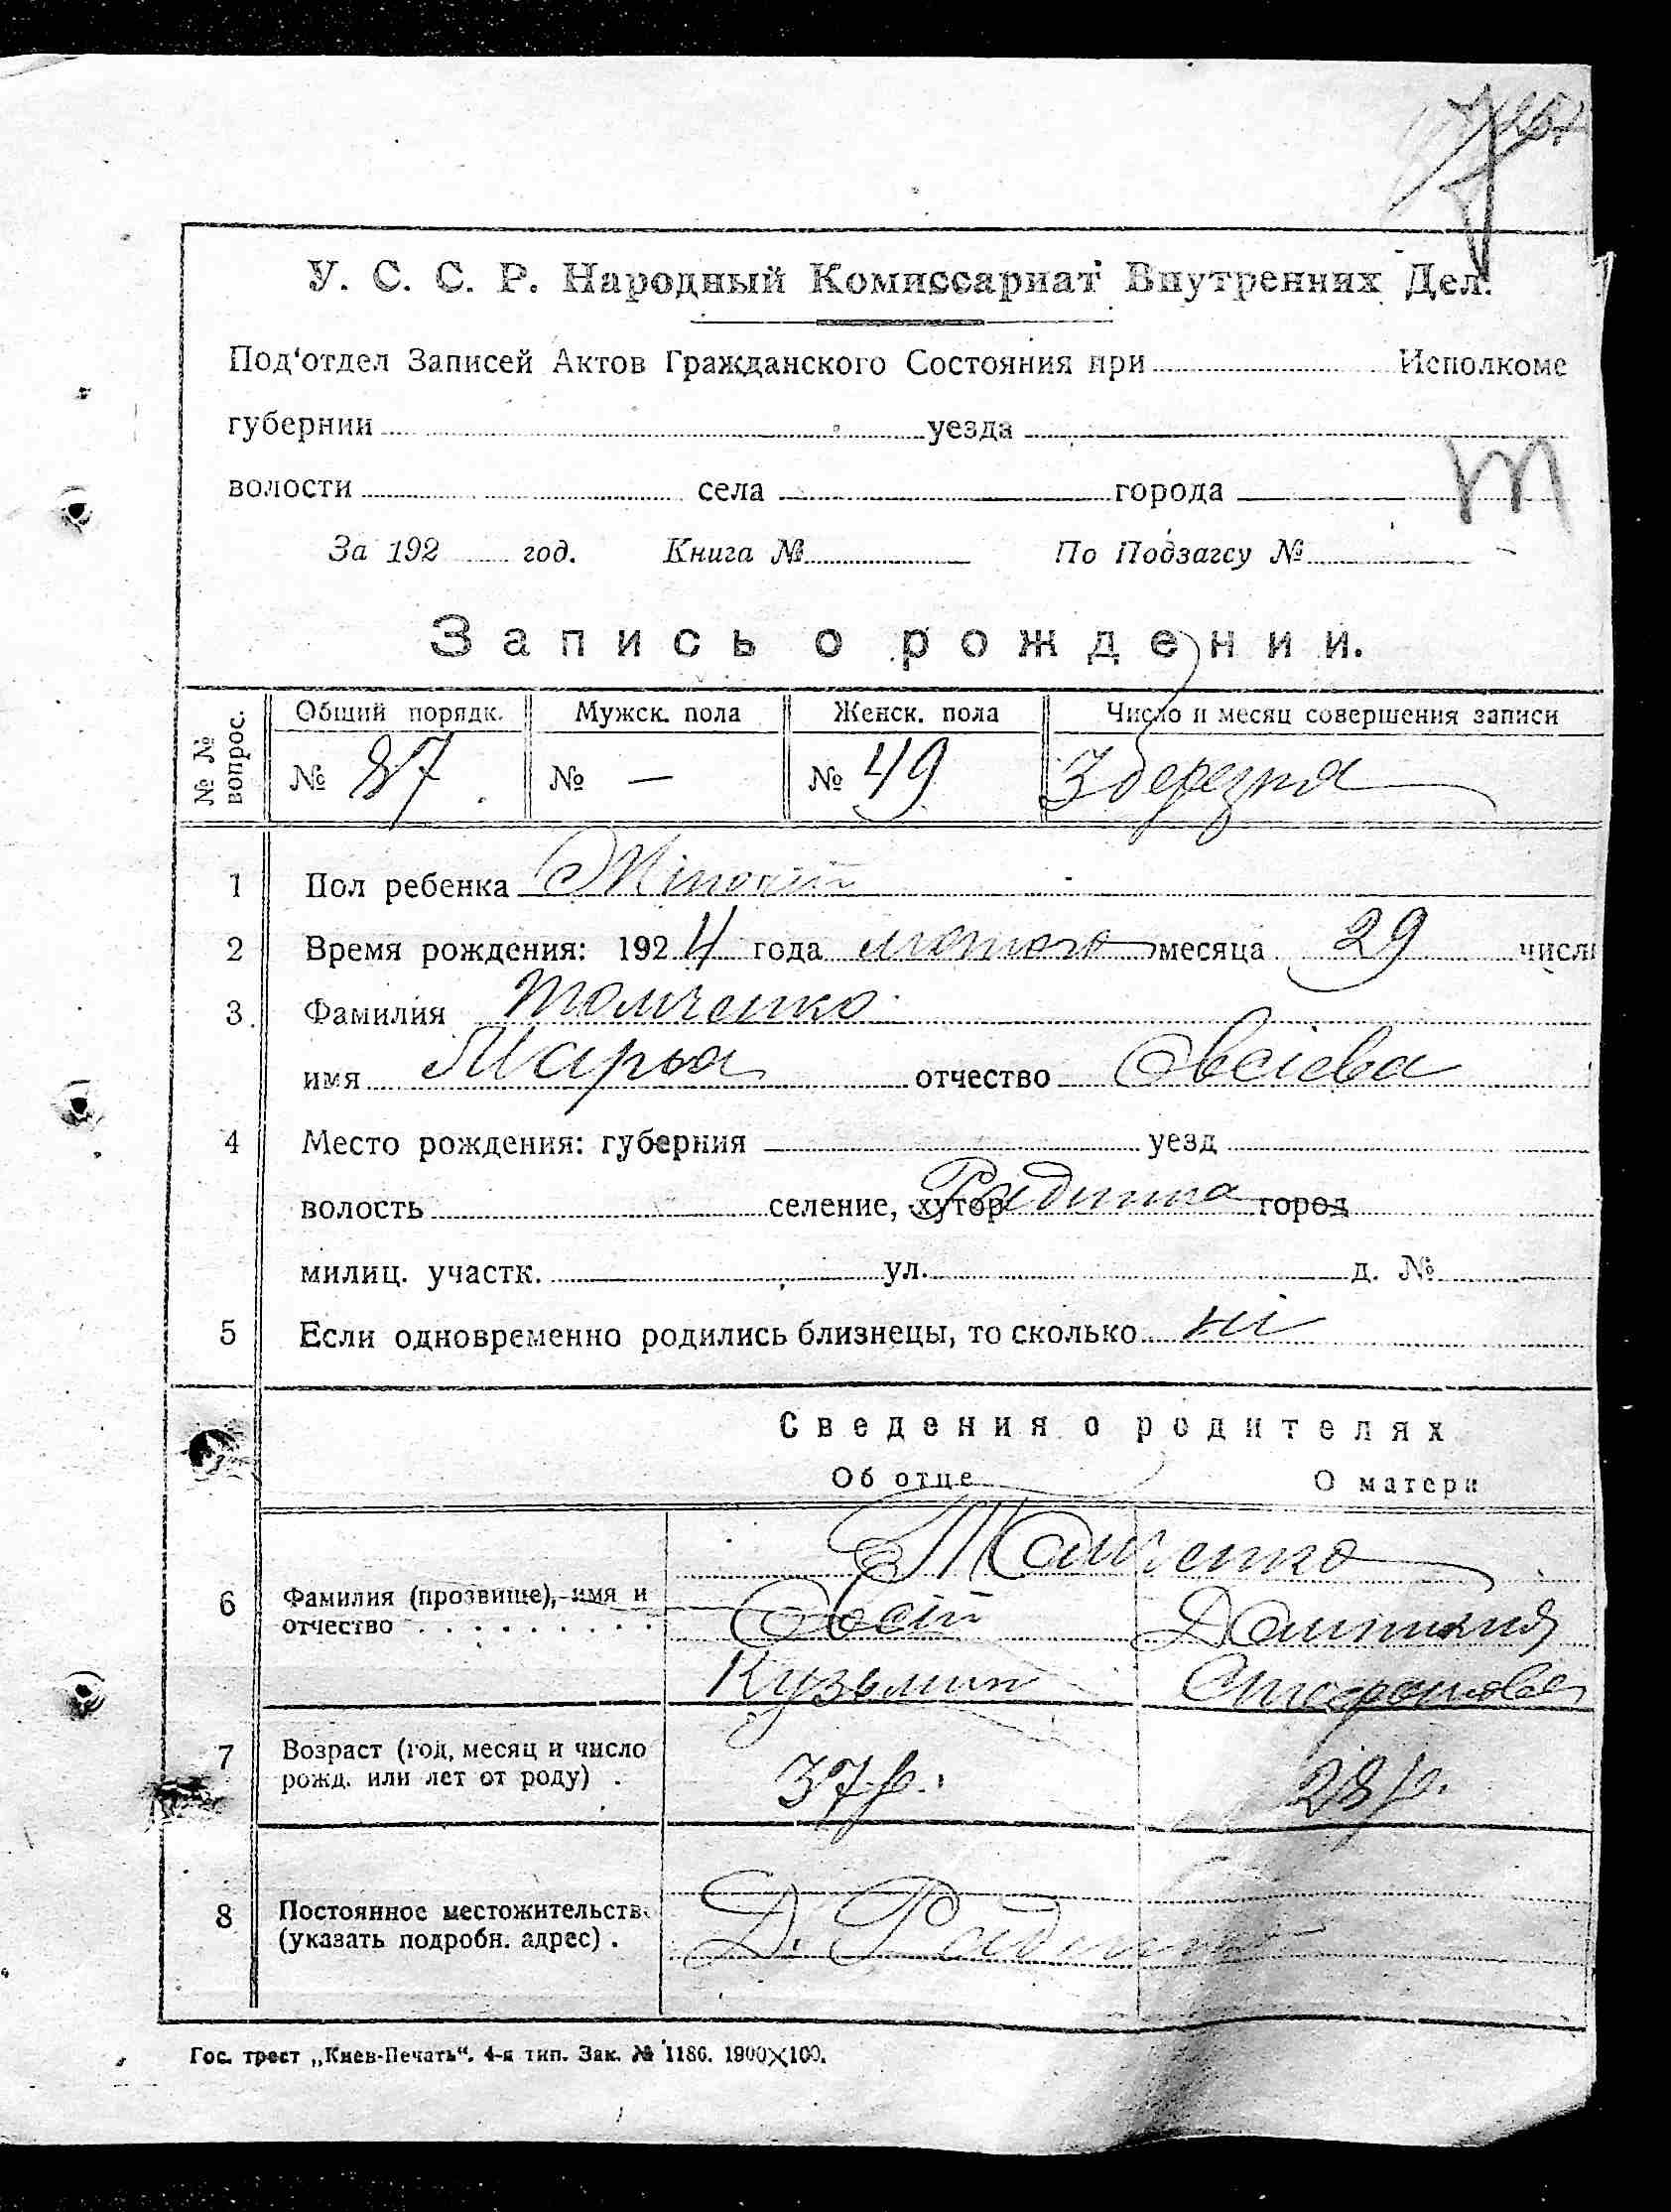 У. С. С. Р. Народный Комиссариат Внутренних Дел.
Под'отдел Записей Актов Гражданского Состояния при Исполкоме
губернии уезда
волости села города
За 192 год. Книга № По Подзагсу №
Запись о рождении.
№ № вопрос. Общий порядк. Мужск. пола Женск. пола Число и месяц совершения записи
№ 87 № — № 49 3 березня
1 Пол ребенка Жіночій
2 Время рождения: 1924 года лютого месяца 29 числ
3. Фамилия
имя Марья отчество Овсієва
4 Место рождения: губерния уезд
волость селение, хутор город
милиц. участк. ул. д. №
5 Если одновременно родились близнецы, то сколько ні
Сведения о родителях
Об отце О матери
6 Фамилия (прозвище), имя и отчество
Овсій
Кузьмин
7 Возраст (год, месяц и число рожд. или лет от роду) 37 р. 28 р.
8 Постоянное местожительств (указать подробн. адрес) Д.
Гос. трест „Киев-Печать“. 4-я тип. Зак. № 1186. 1900×100.